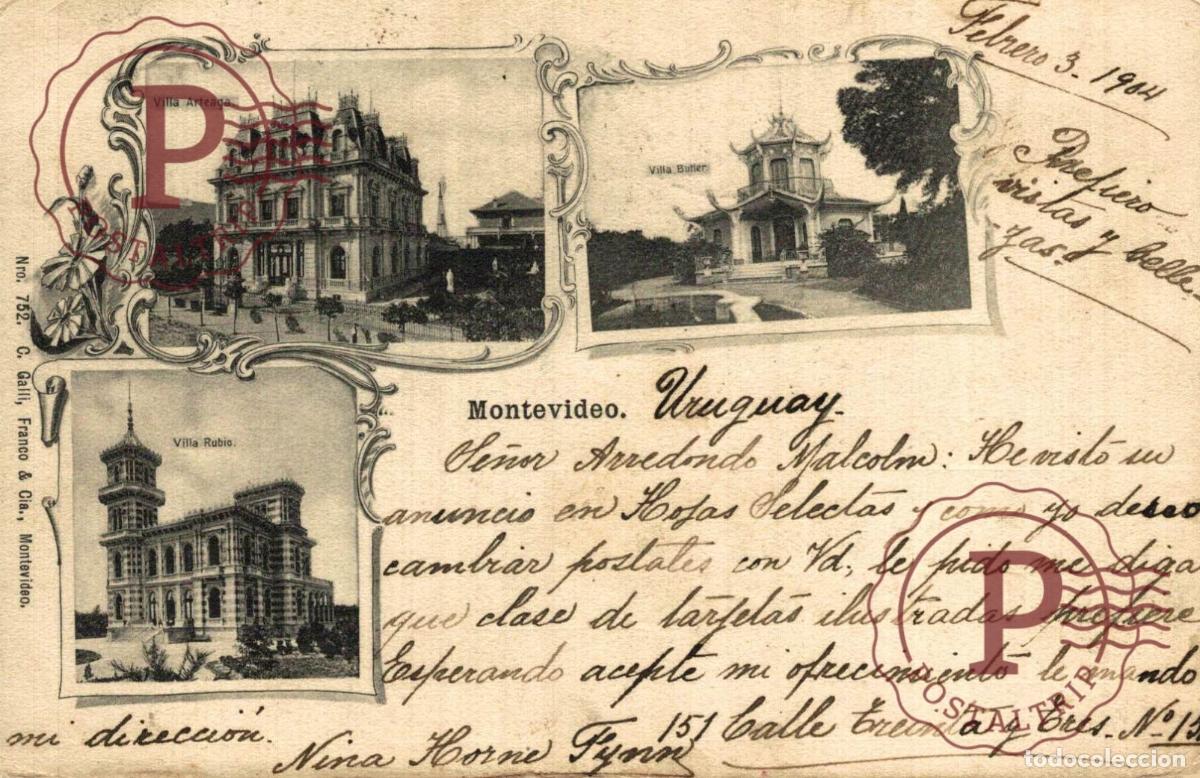 Febrero 3. 1904
Prefiero
vistas y belle
yas.
Villa Arteaga.
Villa Butler.
Villa Rubio.
Nro. 752. C. Galli, Franco & Cia., Montevideo.
Montevideo. Uruguay.
Señor Arredondo Malcolm: He visto su
anuncio en Hojas Selectas y como yo deseo
cambiar postales con Vd., le pido me diga
que clase de tarjetas ilustradas prefiere
Esperando acepte mi ofrecimiento le mando
mi dirección.
Nina Horne Fynn
151 Calle Treinta y Tres. Nº
P
POSTALTRIP
P
POSTALTRIP
todocoleccion